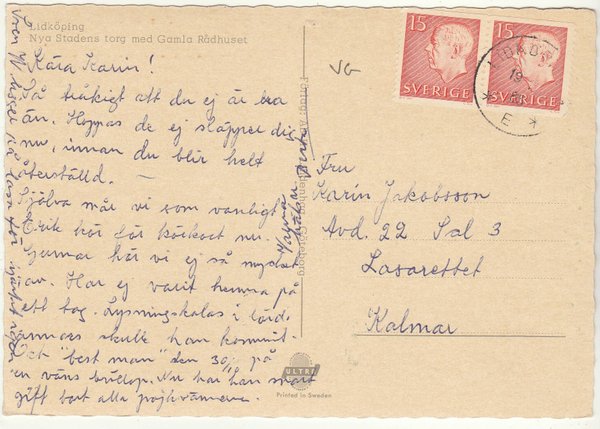 Lidköping
Nya Stadens torg med Gamla Rådhuset
Kära Karin!
Så tråkigt att du ej är bra
än. Hoppas de ej släpper dig
nu, innan du blir helt
återställd. —
Själva mår vi som vanligt
Erik kör för köket nu.
Gunnar hör vi ej så mycket
av. Har ej varit hemma på
ett tag. Lysningskalas i lörd.
annars skulle han kommit.
"best man" den 30/ på
en väns bröllop. Nu har han snart
gift bort alla pojkvännerna.
VG
15 15
SVERIGE SVERIGE
19
E
Fru
Karin Jakobsson
Avd. 22 Sal 3
Lasarettet
Kalmar
Förlag: Göteborg
ULTRA
Printed in Sweden